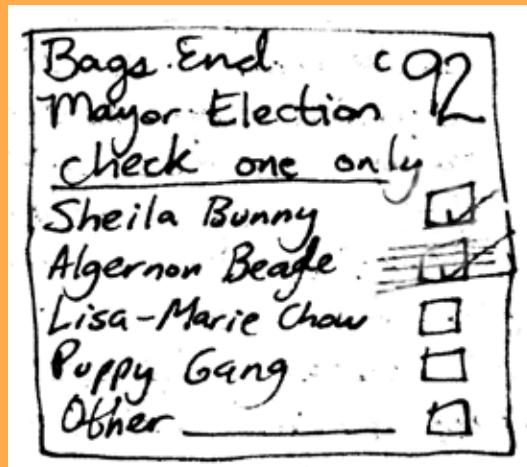 Bags End '92
Mayor Election
check one only
Sheila Bunny
Algernon Beagle
Lisa-Marie Chow
Puppy Gang
Other